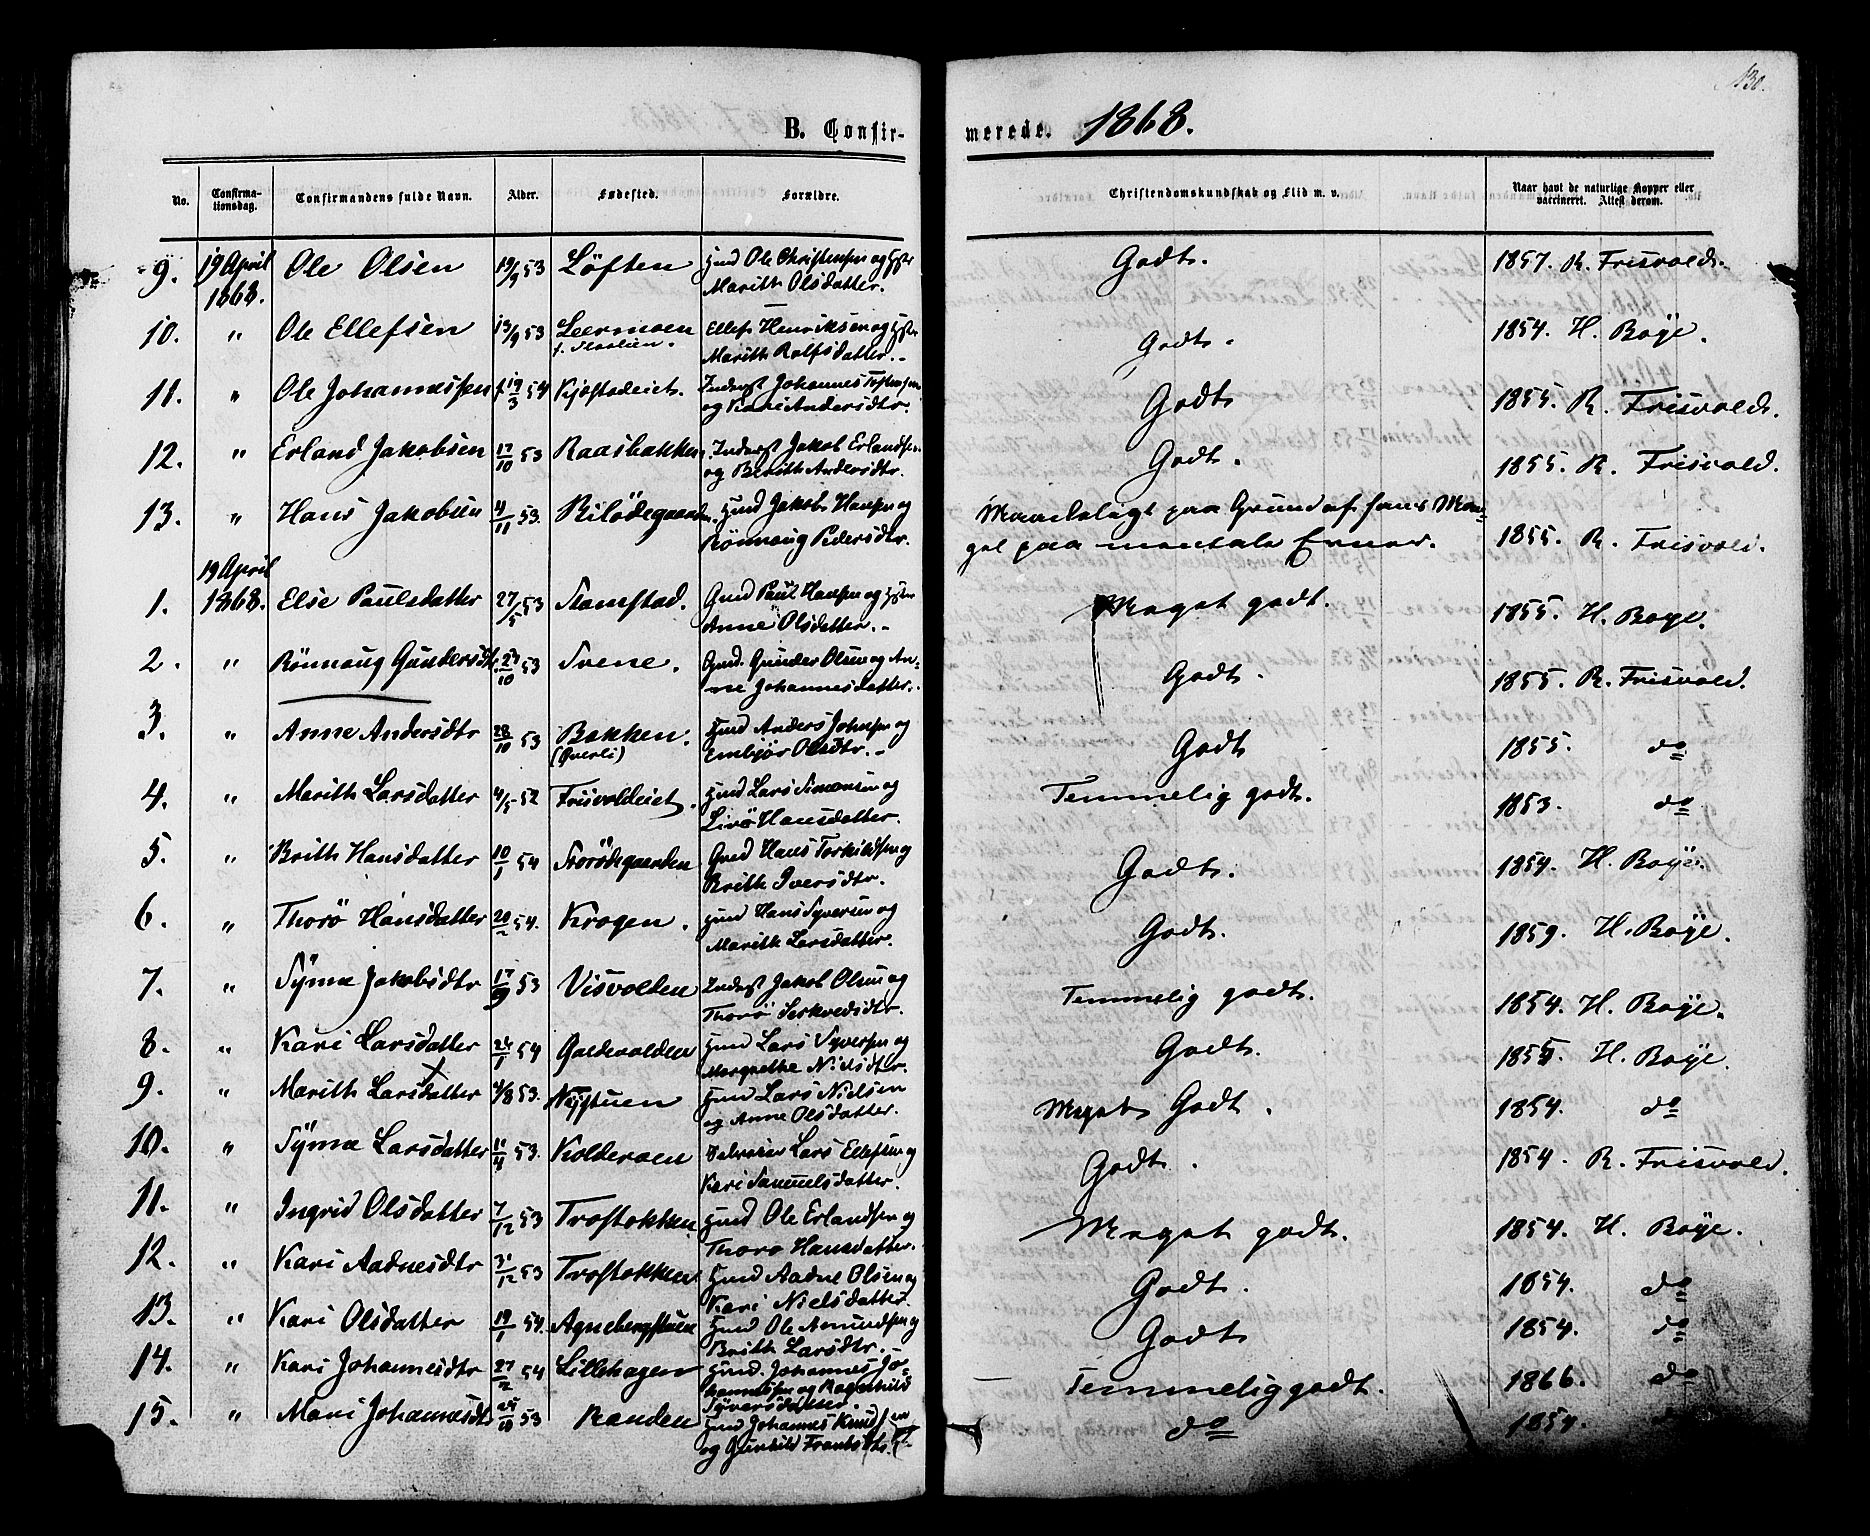 130.
B. Confir-
merede. 1868.
No.
Confirma-
tionsdag.
Confirmandens fulde Navn.
Alder.
Fødested.
Forældre.
Christendomskundskab og Flid m. v.
Naar havt de naturlige Kopper eller
vaccineret. Attest derom.
9. 19 April 1868. Ole Olsen 19/9 53 Løften Hmd Ole Christensen og Hstr Marith Olsdatter. Godt. 1857. R. Frisvold.
10. " Ole Ellefsen 13/9 53 Leermoen Ellef Henriksen og Hstr Marith Rolfsdatter. Godt. 1854. H. Boye.
11. " Ole Johannessen 19/3 54 Kjæstadeiet. Inderst Johannes og Kari Andersdtr. Godt 1855. R. Frisvold.
12. " Erland Jakobsen 17/10 53 Raasbakken Inderst Jakob Erlandsen og Berith Andersdtr. Godt. 1855. R. Frisvold.
13. " Hans Jakobsen 4/11 53. Rilødegaarden. Hmd Jakob Hansen og Rönnaug Pedersdtr. Maadeligt paa Grund af hans Man-
gel paa mentale Evner. 1855. R. Frisvold.
1. 19 April 1868. Else Paulsdatter 27/5 53 Stamstad. Gmd Paul Hansen og Hstr Anne Olsdatter. Meget godt. 1855. H. Boye.
2. " Rönnaug Gundersdt. 29/10 53 Svene. Gmd. Gunder Olsen og An-
ne Johannesdatter. Godt. 1855. R. Frisvold.
3. " Anne Andersdtr 28/10 53 Bakken. (Øverli) Hmd Anders Johnsen og Embjør Olsdtr. Godt 1855. do
4. " Marith Larsdatter 4/5 52 Frisvoldeiet. Hmd Lars Simensen og Livö Hansdatter. Temmelig godt. 1853. do
5. " Brith Hansdatter 10/1 54 Storödegaarden Gmd Hans Torkildsen og Brith Iversdtr. Godt. 1854. H. Boye.
6. " Thorö Hansdatter 20/2 54. Krogen. Hmd Hans Syversen og Marith Larsdatter. Godt. 1859. H. Boye.
7. " Synnæ Jakobsdtr 17/9 53 Visvolden Inderst Jakob Olsen og Thorö Seskvedsdtr. Temmelig godt. 1854. H. Boye.
8. " Kari Larsdatter 24/1 54 Goldevolden Hmd Lars Syversen og Margrethe Nielsdtr. Godt. 1855. H. Boye.
9. " Marith Larsdatter 4/8 53. Nystuen Hmd Lars Nielsen og Anne Olsdatter. Meget Godt. 1854. do
10. " Synnæ Larsdatter 11/4 53. Kolderoen Lars Ellefsen og Kari Samuelsdatter. Godt. 1854. R. Frisvold.
11. " Ingrid Olsdatter 7/12 53 Trostokken Hmd Ole Erlandsen og Thoro Hansdatter. Meget godt. 1854. H. Boye.
12. " Kari Aadnesdtr 31/12 53 Trostokken Hmd Aadne Olsen og Kari Nielsdatter. Godt. 1854. do
13. " Kari Olsdatter 19/1 54. Agnebergstuen Hmd Ole Amundsen og Brith Larsdtr. Godt 1854. do
14. " Kari Johannesdtr 27/2 54 Lillehagen Hmd. Johannes Jo-
hannessen og Ragnhild Syversdatter. Temmelig godt. 1866. do
15. " Mari Johannesdt. 53 Randen Hmd Johannes Knudsen og Gunhild do 1854.